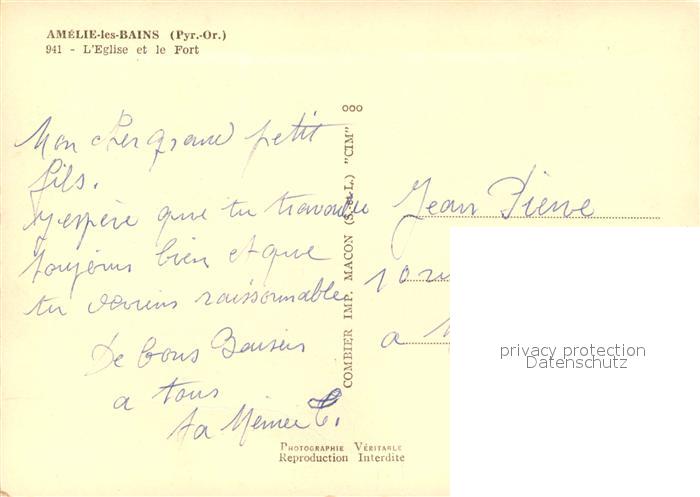 AMÉLIE-les-BAINS (Pyr.-Or.)
941 - L'Eglise et le Fort
Mon cher grand petit
fils.
J'espère que tu travaille
toujours bien et que
tu deviens raisonnable
De bons Baisers
a tous
ta Mémée
COMBIER IMP. MACON (S.-et-L.) "CIM"
Jean Pierre
10
a
privacy protection
Datenschutz
PHOTOGRAPHIE VÉRITABLE
Reproduction Interdite